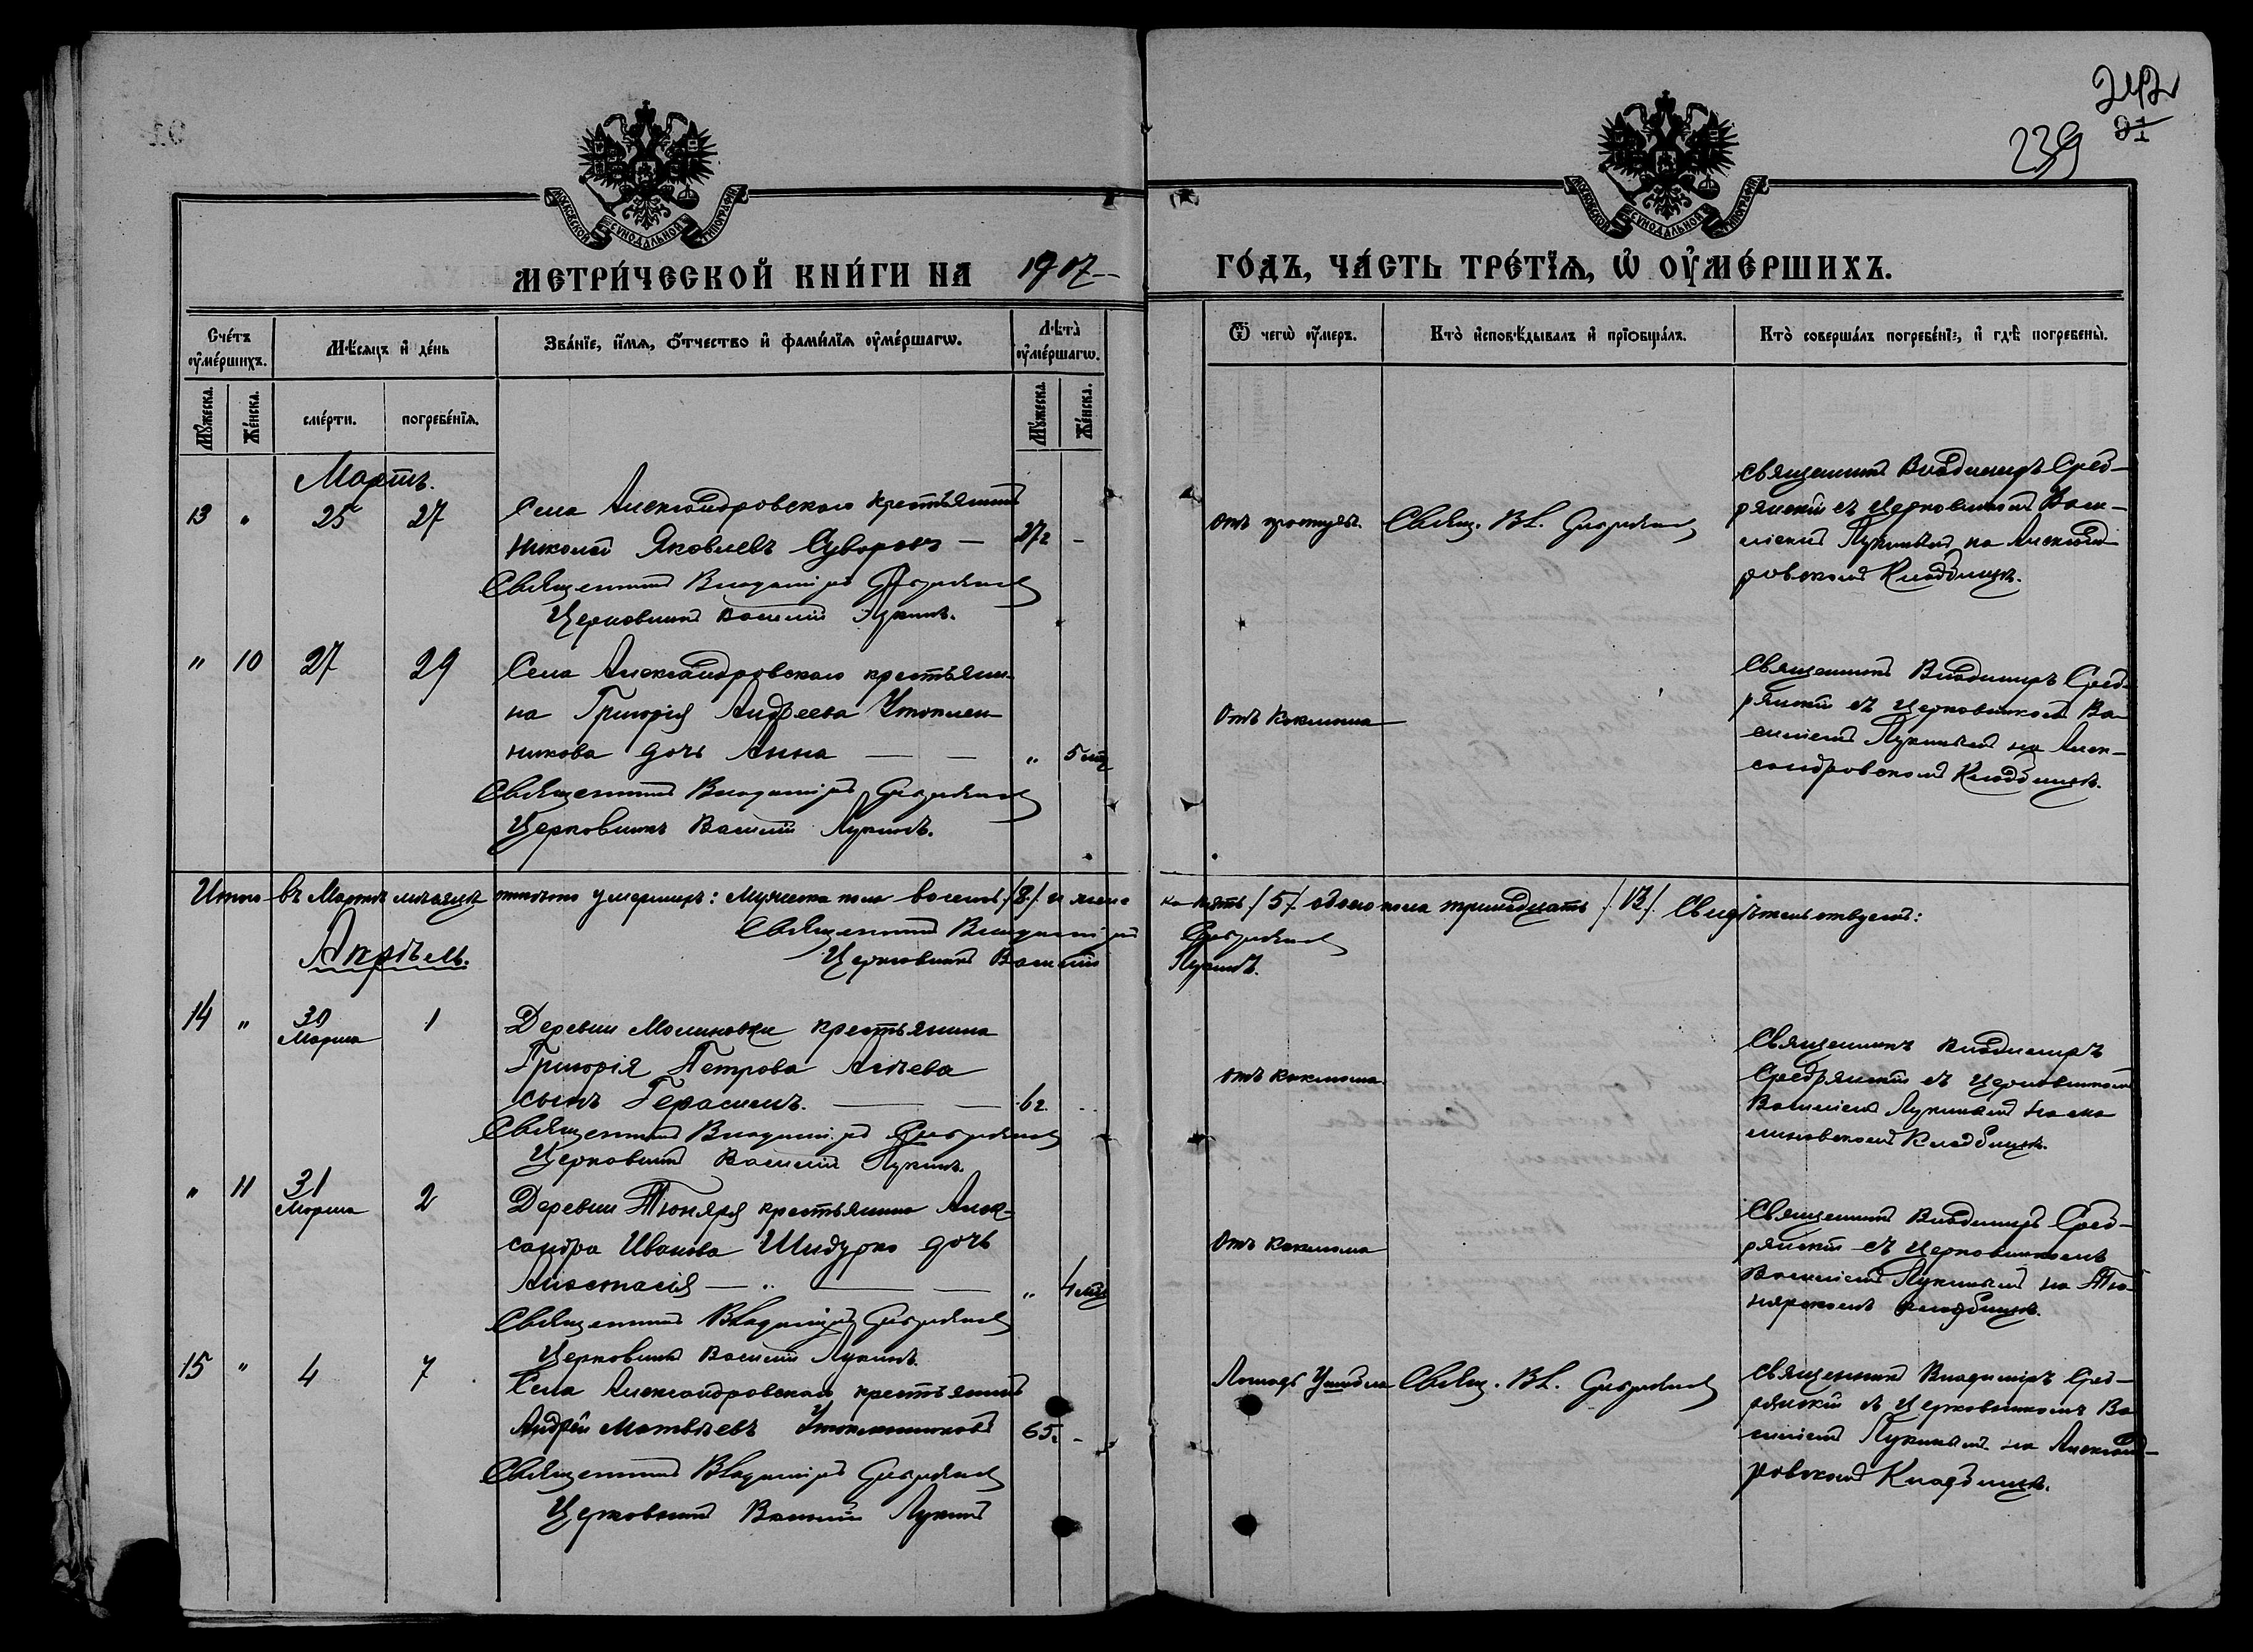 242
239 91
МОСКОВСКОЙ СѴНОДАЛЬНОЙ ТИПОГРАФІИ
МОСКОВСКОЙ СѴНОДАЛЬНОЙ ТИПОГРАФІИ
МЕТРИ́ЧЕСКОЙ КНИ́ГИ НА 1907
ГО́ДЪ, ЧА́СТЬ ТРЕ́ТІѦ, Ѡ҆ ОУ҆МЕ́РШИХЪ.
Сче́тъ оу҆ме́ршихъ.
Мѣ́сѧцъ и҆ де́нь
Зва́нїе, и҆́мѧ, ѻ҆́тчество и҆ фами́лїѧ оу҆ме́ршагѡ.
Лѣ́та оу҆ме́ршагѡ.
Ѿ чегѡ̀ оу҆́меръ.
Кто̀ и҆сповѣ́дывалъ и҆ прїѡбща́лъ.
Кто̀ соверша́лъ погребе́нїе, и҆ гдѣ̀ погребены̀.
Мꙋ́жеска. Же́нска. сме́рти. погребе́нїѧ. Мꙋ́жеска. Же́нска.
Мартъ.
13 " 25 27
Села Александровскаго крестьянинъ
Николай Яковлевъ Суворовъ — 27 г. -
Священникъ Владиміръ Средрянскій
Церковникъ Василій Лукинъ.
отъ простуды.
Свящ. Вл. Средрянскій
Священникъ Владимиръ Сред-
рянскій съ Церковникомъ Васи-
ліемъ Лукинымъ на Александ-
ровскомъ Кладбищѣ.
" 10 27 29
Села Александровскаго крестьяни-
на Григорія Андреева Утоплен
никова дочь Анна — — " 5 мѣ
Священникъ Владиміръ Средрянскій
Церковникъ Василій Лукинъ.
Отъ Коклюша
Священникъ Владимиръ Сред-
рянскій съ Церковникомъ Ва
силіемъ Лукинымъ на Алек-
сандровскомъ Кладбищѣ.
Итого въ Мартѣ мѣсяцѣ умершихъ: мужеска пола восемь /8/ и женс
ка пять /5/ обоего пола тринадцать /13/. Свидѣтельствуемъ:
Священникъ Владиміръ Средрянскій
Церковникъ Василій Лукинъ.
Апрѣль.
14 " 30 Марта 1
Деревни Малиновки крестьянина
Григорія Петрова
сынъ Герасимъ. — — 6 г. -
Священникъ Владиміръ Средрянскій
Церковникъ Василій Лукинъ.
отъ Коклюша.
Священникъ Владимиръ
Средрянскій съ Церковникомъ
Василіемъ Лукинымъ на Ма
линовскомъ Кладбищѣ.
" 11 31 Марта 2
Деревни Тюняря крестьянина Алек-
сандра Иванова Шидурко дочь
Анастасія — — " 4 мѣ
Священникъ Владиміръ Средрянскій
Церковникъ Василій Лукинъ.
Отъ Коклюша
Священникъ Владимиръ Сред-
рянскій съ Церковникомъ
Василіемъ Лукинымъ на Тю-
нярскомъ кладбищѣ.
15 " 4 7
Села Александровскаго крестьянинъ
Андрей Матвѣевъ Утопленниковъ 65 г. -
Священникъ Владиміръ Средрянскій
Церковникъ Василій Лукинъ
Лошадь Ушибла
Свящ. Вл. Средрянскій
Священникъ Владиміръ Сред-
рянскій съ Церковникомъ Ва
силіемъ Лукинымъ на Александ-
ровскомъ Кладбищѣ.